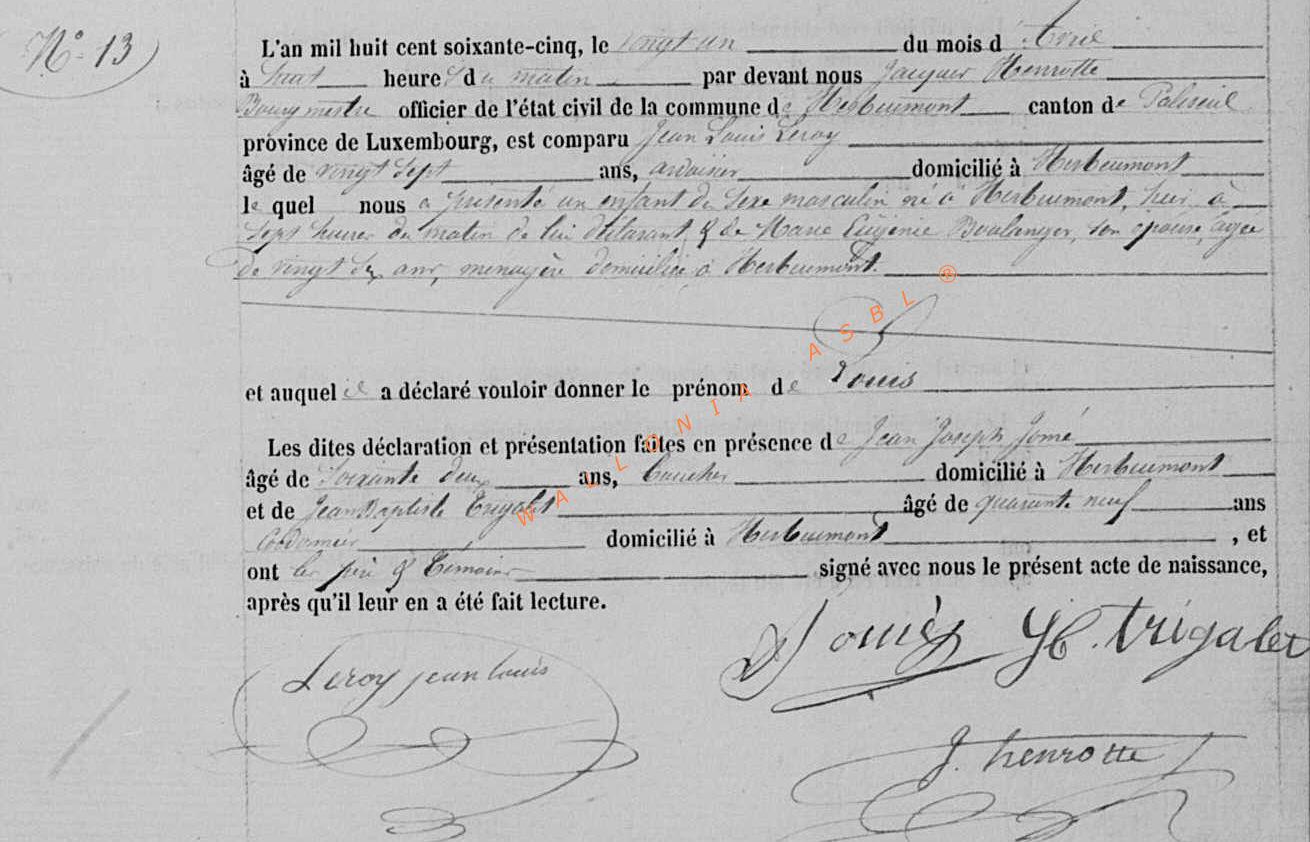 N° 13
L'an mil huit cent soixante-cinq, le vingt un du mois d'Avril
à huit heures du matin par devant nous Jacques Henrotte
Bourgmestre officier de l'état civil de la commune de Herbeumont canton de Paliseul
province de Luxembourg, est comparu Jean Louis Leroy
âgé de vingt sept ans, ardoisier domicilié à Herbeumont
le quel nous a présenté un enfant du sexe masculin né à Herbeumont, hier à
sept heures du matin de lui déclarant & de Marie Eugénie Boulanger, son épouse, âgée
de vingt six ans, menagère domiciliée à Herbeumont.
et auquel il a déclaré vouloir donner le prénom de Louis
Les dites déclaration et présentation faites en présence de Jean Joseph Jomé
âgé de Soixante deux ans, domicilié à Herbeumont
et de Jean Baptiste Trigalet âgé de quarante neuf ans
Cordonnier domicilié à Herbeumont, et
ont les père & témoins signé avec nous le présent acte de naissance,
après qu'il leur en a été fait lecture.
Leroy jean louis
trigalet
J. henrotte
WALLONIA ASBL ®